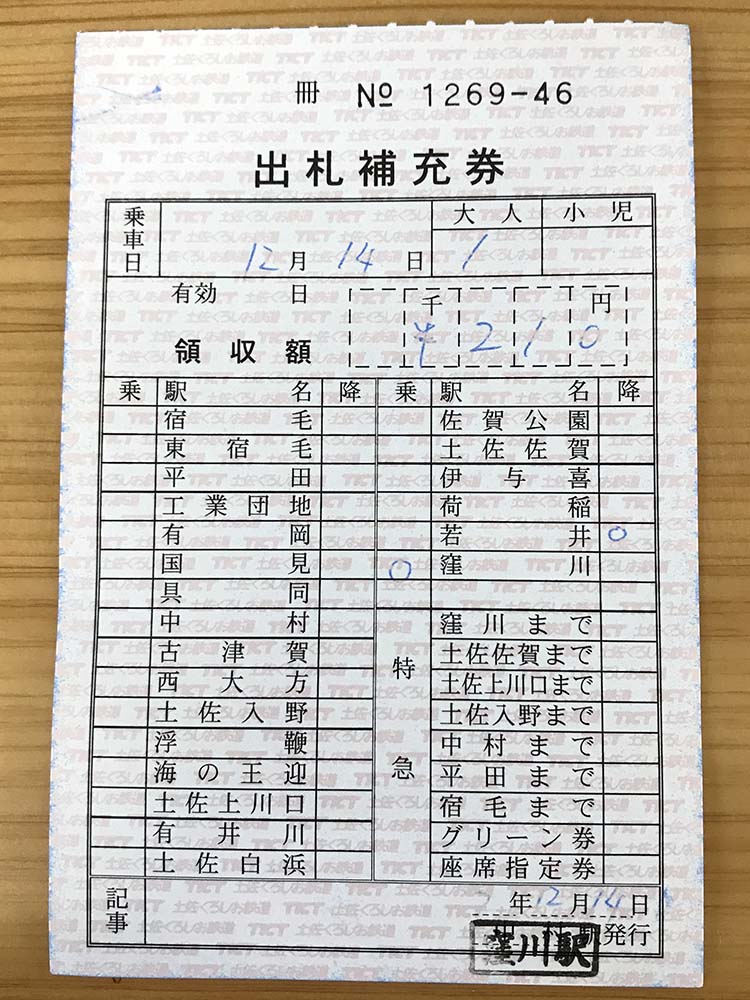 冊 № 1269-46
出札補充券
乗車日 12月14日 大人 1 小児
有効 日 千 円
領収額 ¥210
乗 駅名 降 乗 駅名 降
宿毛 佐賀公園
東宿毛 土佐佐賀
平田 伊与喜
工業団地 荷稲
有岡 若井 ○
国見 ○ 窪川
具同
中村 窪川まで
古津賀 特急 土佐佐賀まで
西大方 土佐上川口まで
土佐入野 土佐入野まで
浮鞭 中村まで
海の王迎 平田まで
土佐上川口 宿毛まで
有井川 グリーン券
土佐白浜 座席指定券
記事 年12月14日
窪川駅 発行